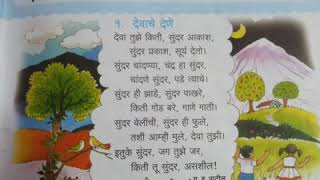 १. देवाचे देणे
देवा तुझे किती, सुंदर आकाश,
सुंदर प्रकाश, सूर्य देतो।
सुंदर चांदण्या, चंद्र हा सुंदर,
चांदणे सुंदर, पडे त्याचे।
सुंदर ही झाडे, सुंदर पाखरे,
किती गोड बरे, गाणे गाती।
सुंदर वेलींची, सुंदर ही फुले,
तशी आम्ही मुले, देवा तुझी।
इतुके सुंदर, जग तुझे जर,
किती तू सुंदर, असशील!